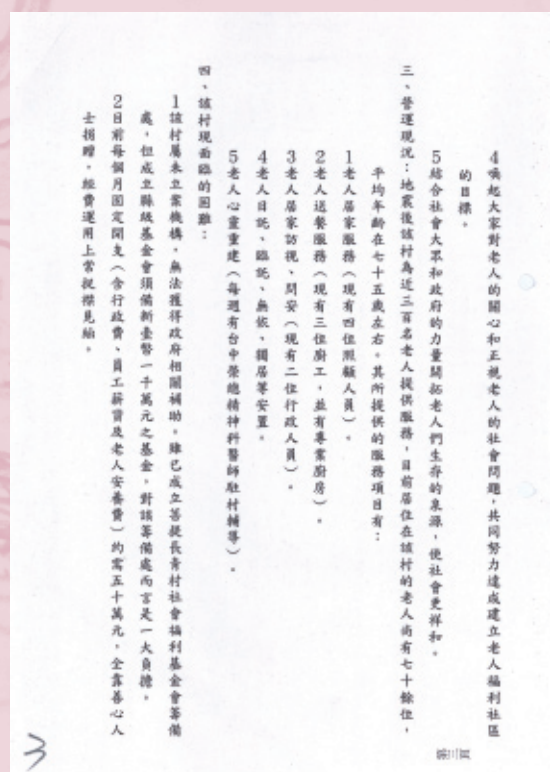 4喚起大家對老人的關心和正視老人的社會問題，共同努力達成建立老人福利社區
的目標。
5結合社會大眾和政府的力量開拓老人們生存的泉源，使社會更祥和。
三、營運現況：地震後該村為近三百名老人提供服務，目前居住在該村的老人尚有七十餘位，
平均年齡在七十五歲左右。其所提供的服務項目有：
1老人居家服務（現有四位照顧人員）。
2老人送餐服務（現有三位廚工，並有專業廚房）。
3老人居家訪視、問安（現有二位行政人員）。
4老人日託、臨託、無依、獨居等安置。
5老人心靈重建（每週有台中榮總精神科醫師駐村輔導）。
四、該村現面臨的困難：
1該村屬未立案機構，無法獲得政府相關補助。雖已成立菩提長青村社會福利基金會籌備
處，但成立縣級基金會須備新臺幣一千萬元之基金，對該籌備處而言是一大負擔。
2目前每個月固定開支（含行政費、員工薪資及老人安養費）約需五十萬元，全靠善心人
士捐贈，經費運用上常捉襟見絀。
3